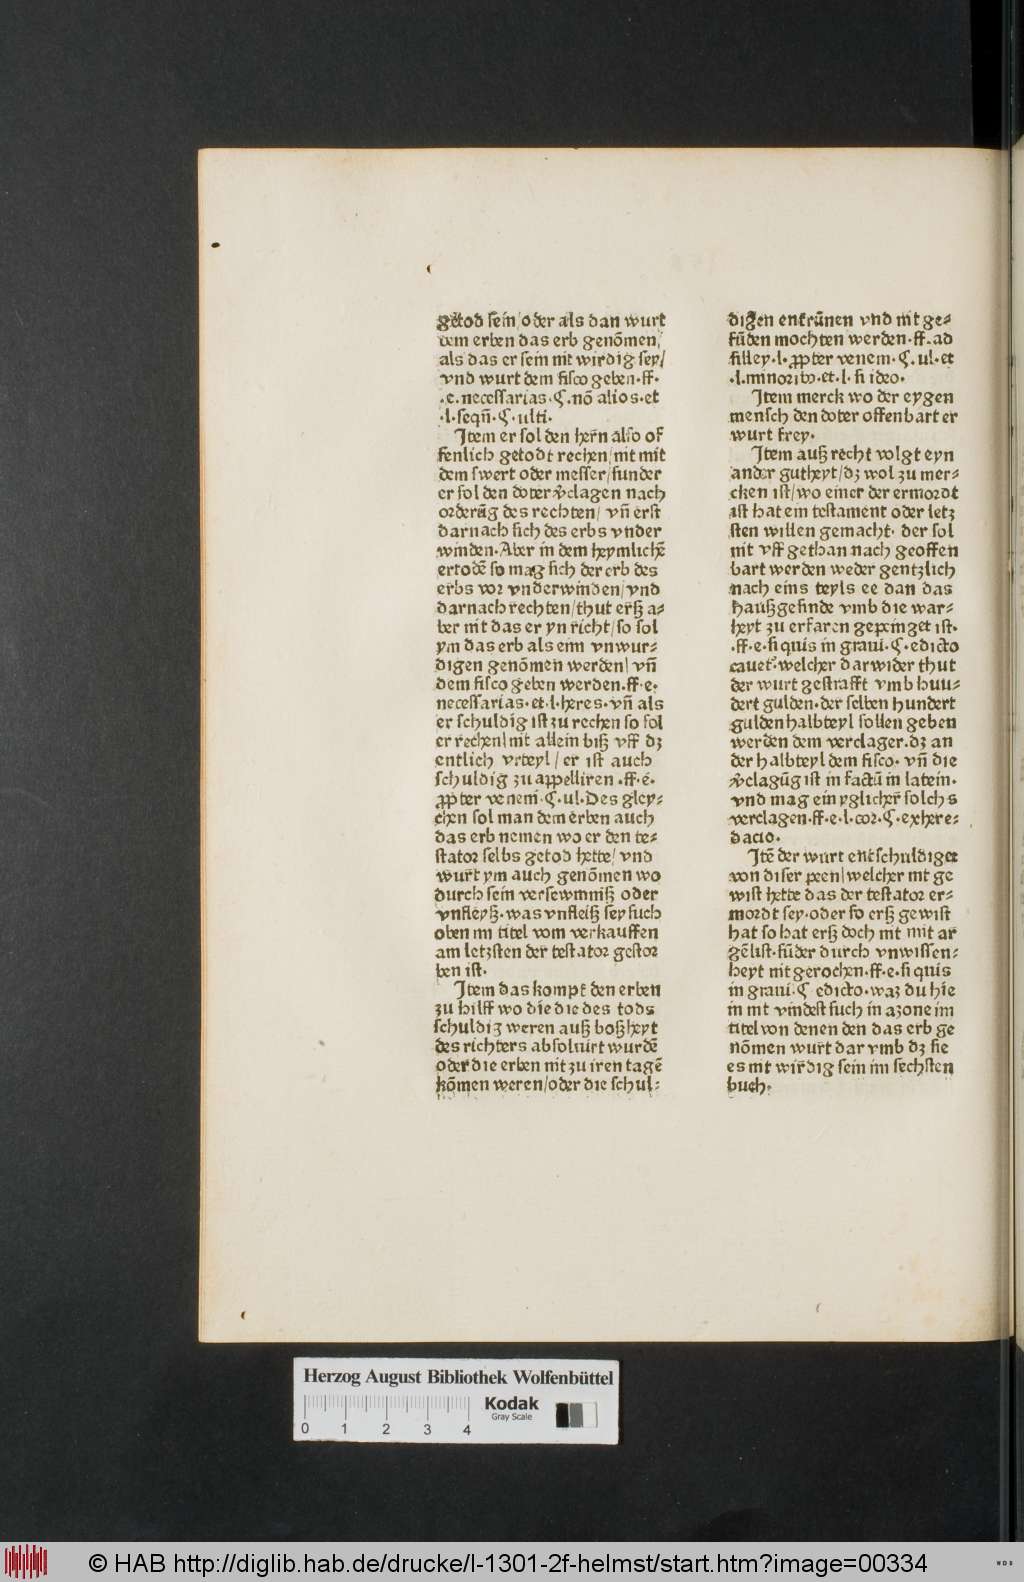 getod sein/oder als dan wurt
dem erben das erb genõmen/
als das er sein nit wirdig sey/
vnd wurt dem fisco geben·ff·
·e·necessarias·¶·nõ alios·et
·l·seqñ·¶·ulti·
Item er sol den herñ also of
fenlich getodt rechen/nit mit
dem swert oder messer/sunder
er sol den doter v̄clagen nach
orderũg des rechten/ vñ erst
darnach sich des erbs vnder
winden·Aber in dem heymlichẽ
ertodẽ so mag sich der erb des
erbs vor vnderwinden/vnd
darnach rechten/thut erß a⸗
ber nit das er yn richt/so sol
ym das erb als eim vnwur⸗
digen genõmen werden/ vñ
dem fisco geben werden·ff·e·
necessarias·et·l·heres·vñ als
er schuldig ist zu rechen so sol
er rechen/nit allein biß vff dz
entlich vrteyl/ er ist auch
schuldig zu appelliren·ff·e·
ꝓpter venem̄·¶·ul·Des gley⸗
chen sol man dem erben auch
das erb nemen wo er den te⸗
stator selbs getod hette/vnd
wurt ym auch genõmen wo
durch sein versewmniß oder
vnfleyß·was vnfleiß sey such
oben im titel vom verkauffen
am letzsten der testator gestor
ben ist·
Item das kompt den erben
zu hilff wo die die des tods
schuldig weren auß boßheyt
des richters absoluirt wurdẽ
oder die erben nit zu iren tagẽ
kõmen weren/oder die schul⸗
digen entrũnen vnd nit ge⸗
fũden mochten werden·ff·ad
silley·l·ꝓpter venem·¶·ul·et
·l·minoribꝰ·et·l·si ideo·
Item merck wo der eygen
mensch den doter offenbart er
wurt frey·
Item auß recht volgt eyn
ander gutheyt/dz wol zu mer⸗
cken ist/wo einer der ermordt
ist hat ein testament oder letz
sten willen gemacht· der sol
nit vff gethan nach geoffen
bart werden weder gentzlich
nach eins teyls ee dan das
haußgesinde vmb die war⸗
heyt zu erfaren gepeinget ist·
·ff·e·si quis in graui·¶·edicto
cauet᷑·welcher darwider thut
der wurt gestrafft vmb huu⸗
dert gulden·der selben hundert
gulden halbteyl sollen geben
werden dem verclager·dz an
der halbteyl dem fisco· vñ die
v̄clagũg ist in factũ in latein·
vnd mag ein yglicher solchs
verclagen·ff·e·l·cor·¶·exhere⸗
dacio·
Itẽ der wurt entschuldiget
von diser peen/welcher nit ge
wist hette das der testator er⸗
mordt sey·oder so erß gewist
hat so hat erß doch nit mit ar
gẽlist·sũder durch vnwissen⸗
heyt nit gerochen·ff·e·si quis
in graui·¶ edicto·waz du hie
in nit vindest such in azone im
titel von denen den das erb ge
nõmen wurt dar vmb dz sie
es nit wirdig sein im sechsten
buch·
Herzog August Bibliothek Wolfenbüttel
Kodak
Gray Scale
0 1 2 3 4
© HAB http://diglib.hab.de/drucke/l-1301-2f-helmst/start.htm?image=00334